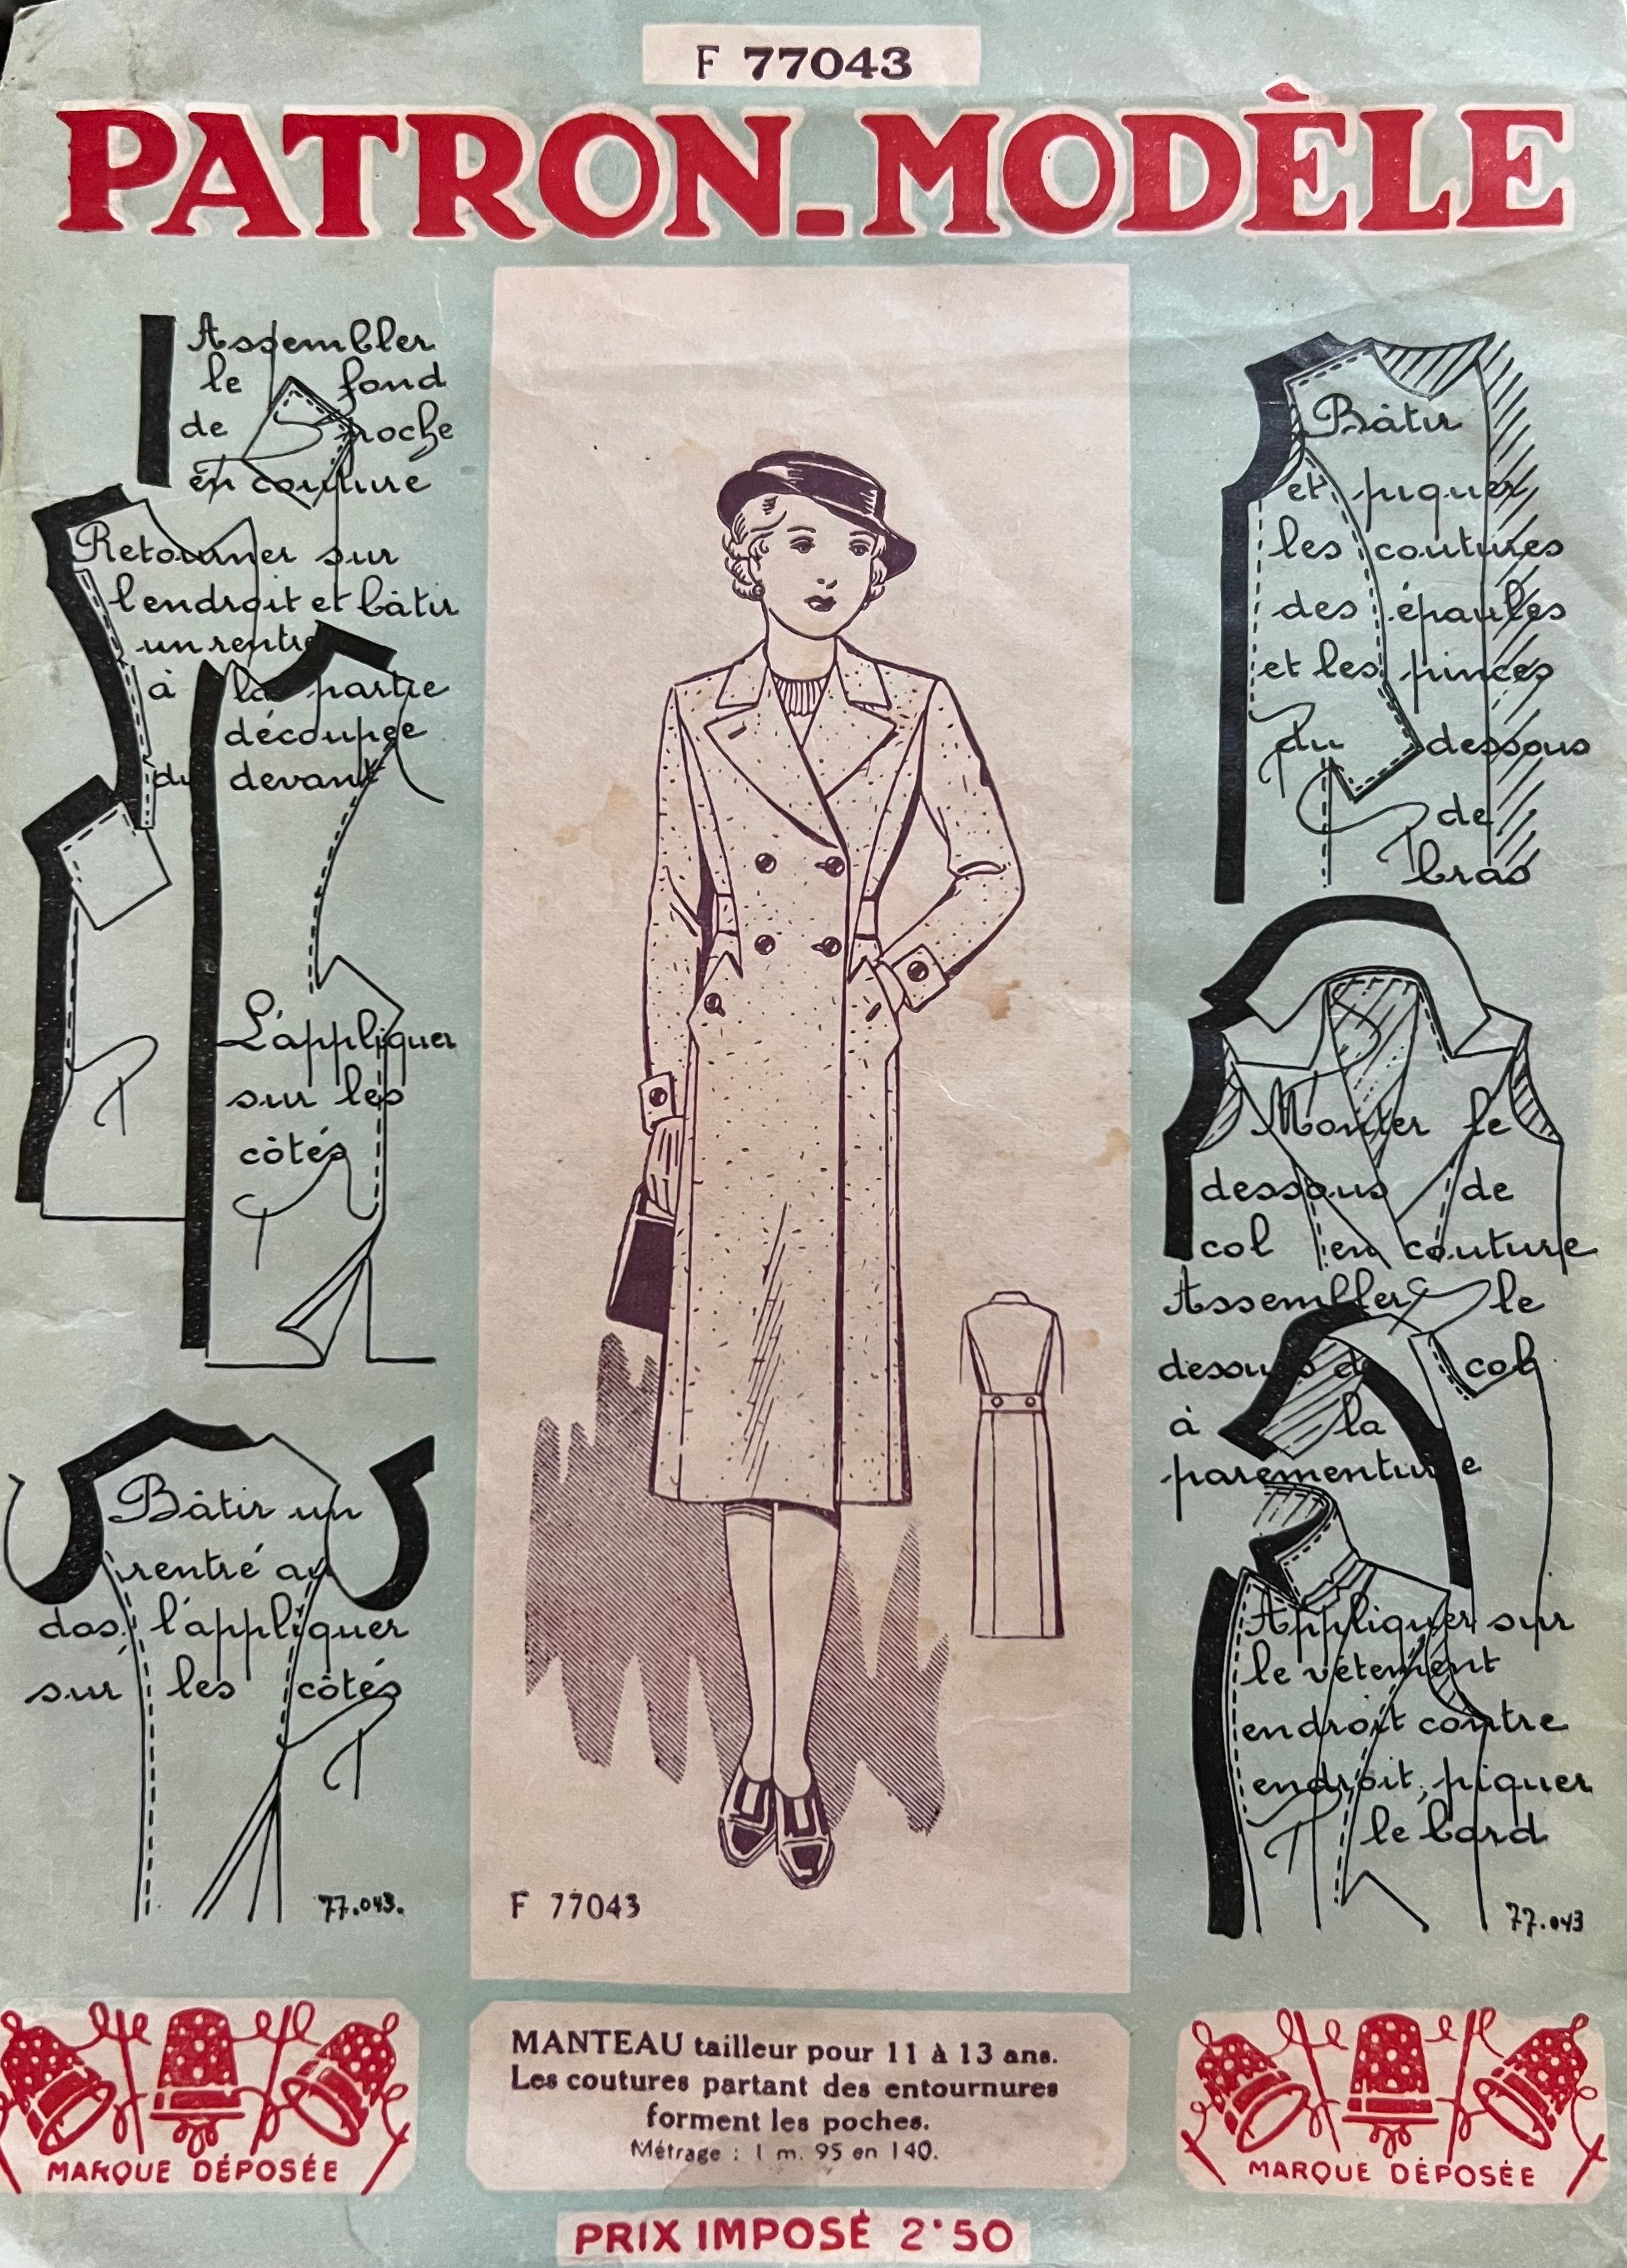 F 77043
PATRON-MODÈLE
Assembler
le fond
de poche
en couture
Retourner sur
l'endroit et bâtir
un rentré
à la partie
découpée
du devant
L'appliquer
sur les
côtés
Bâtir un
rentré au
dos, l'appliquer
sur les côtés
77.043.
Bâtir
et piquer
les coutures
des épaules
et les pinces
du dessous
de
bras
Monter le
dessous de
col en couture
Assembler le
dessus de col
à la
parementure
Appliquer sur
le vêtement
endroit contre
endroit, piquer
le bord
77.043
F 77043
MANTEAU tailleur pour 11 à 13 ans.
Les coutures partant des entournures
forment les poches.
Métrage : 1 m. 95 en 140.
MARQUE DÉPOSÉE
MARQUE DÉPOSÉE
PRIX IMPOSÉ 2'50